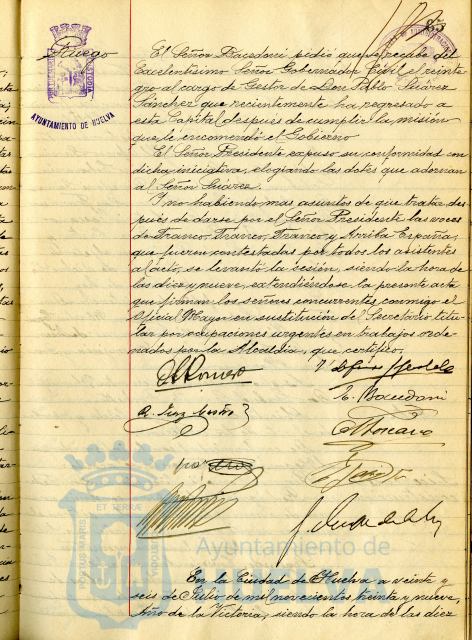 85
Ruego
AYUNTAMIENTO DE HUELVA
El Señor Bacedoni pidió que se recabe del
Excelentísimo Señor Gobernador Civil el reinte
gro al cargo de Gestor de Don Pablo Suárez
Sánchez que recientemente ha regresado a
esta Capital después de cumplir la misión
que le encomendó el Gobierno
El Señor Presidente expuso su conformidad con
dicha iniciativa, elogiando las dotes que adornan
al Señor Suárez.
Y no habiendo mas asuntos de que tratar des
pués de darse por el Señor Presidente las voces
de Franco, Franco, Franco y Arriba España,
que fueron contestadas por todos los asistentes
al acto, se levantó la sesión, siendo la hora de
las diez y nueve, extendiéndose la presente acta
que firman los señores concurrentes, conmigo el
Oficial Mayor en sustitución del Secretario titu
lar por ocupaciones urgentes en trabajos orde
nados por la Alcaldía, que certifico.
Romero
ET TERRÆ
PORTUS MARIS
Ayuntamiento de
HUELVA
En la Ciudad de Huelva a veinte y
seis de Julio de mil novecientos treinta y nueve,
Año de la Victoria, siendo la hora de las diez